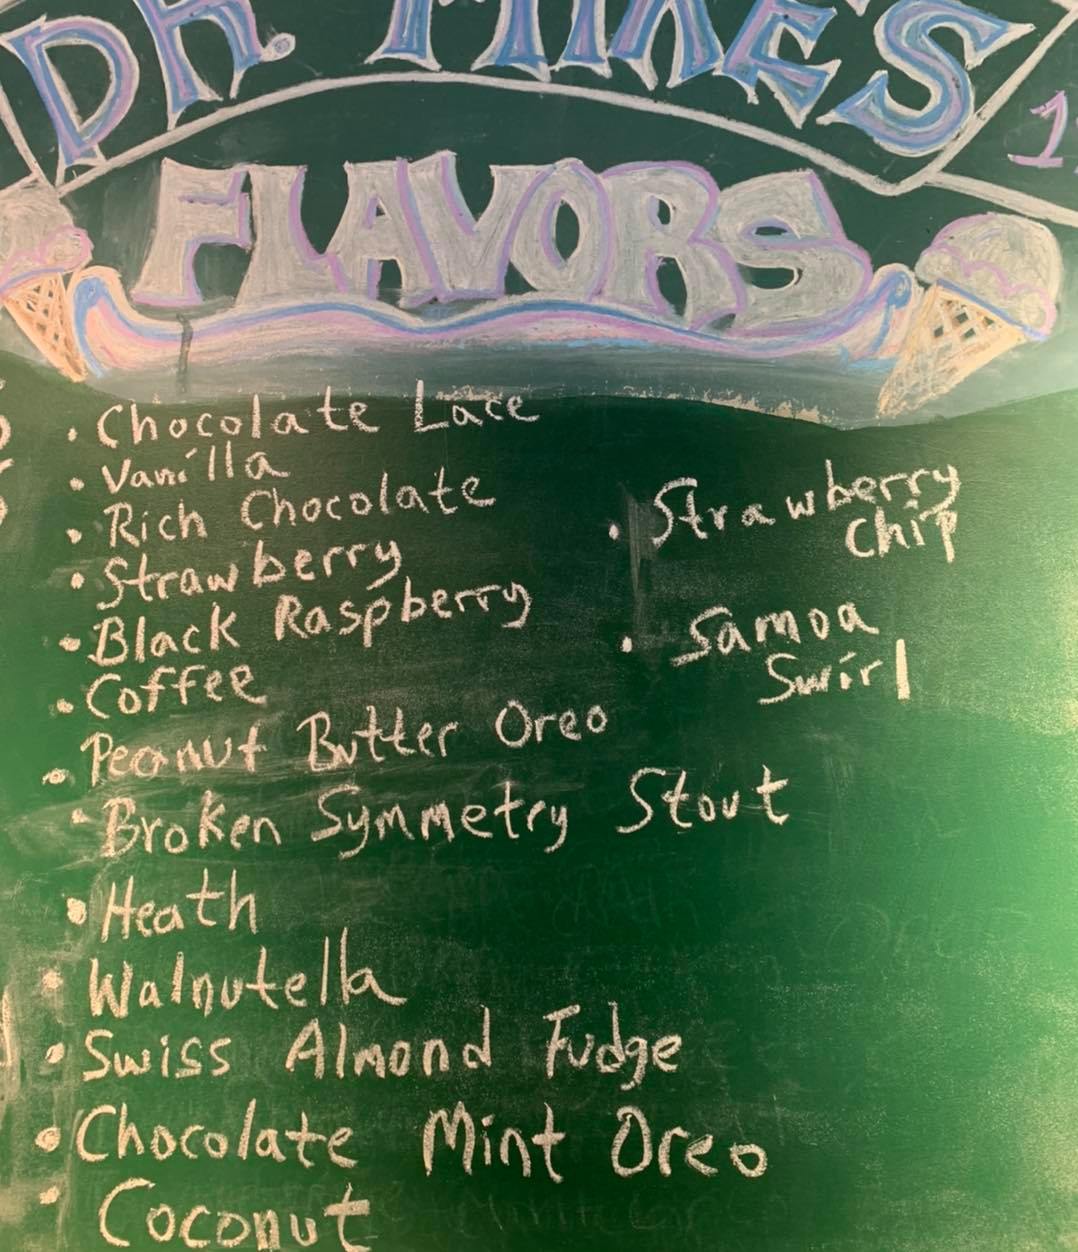 DR. MIKE'S
FLAVORS
• Chocolate Lace
• Vanilla
• Rich Chocolate
• Strawberry
• Black Raspberry
• Coffee
• Peanut Butter Oreo
• Broken Symmetry Stout
• Heath
• Walnutella
• Swiss Almond Fudge
• Chocolate Mint Oreo
• Coconut
• Strawberry
Chip
• Samoa
Swirl